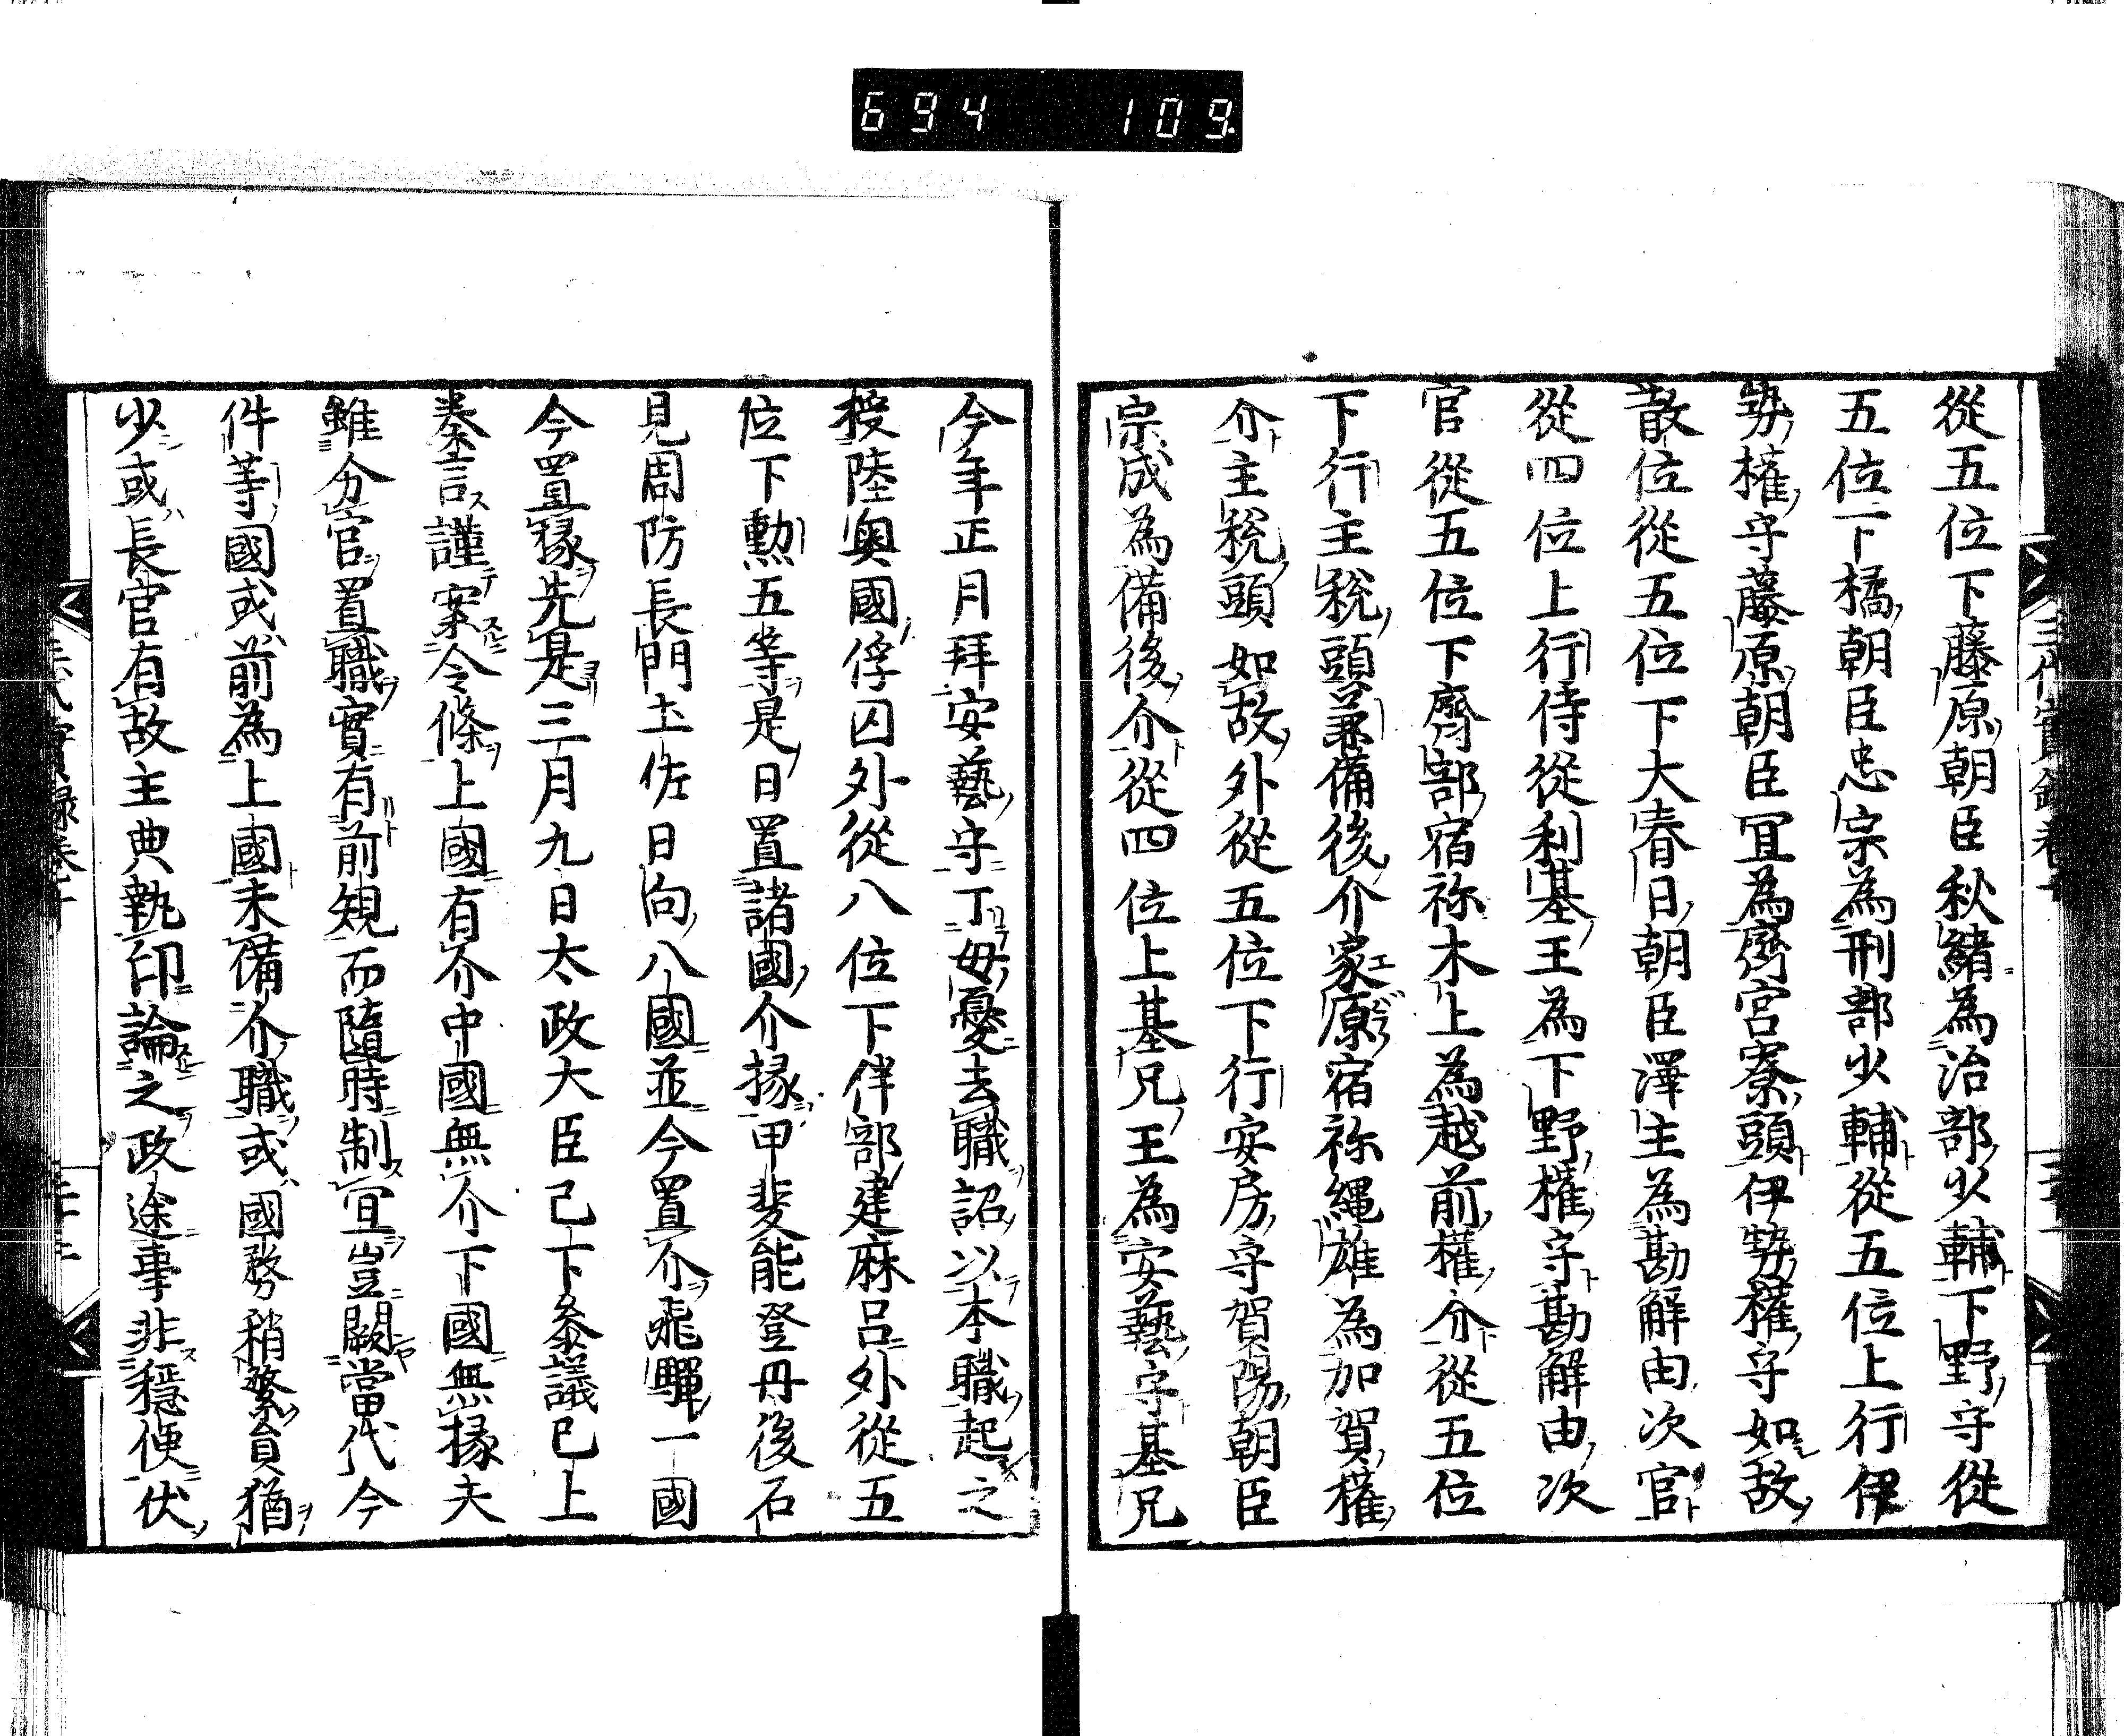 694 109.
從五位下藤原朝臣秋緒為治部少輔下野守從
五位下橘朝臣忠宗為刑部少輔從五位上行伊
勢權守藤原朝臣冝為齊宮寮頭伊勢權守如故
散位從五位下大春日朝臣澤主為勘解由次官
從四位上行侍從利基王為下野權守勘解由次
官從五位下齊部宿祢木上為越前權介從五位
下行主稅頭兼備後介家原宿祢縄雄為加賀權
介主稅頭如故外從五位下行安房守賀陽朝臣
宗成為備後介從四位上基兄王為安藝守基兄
今年正月拜安藝守丁母憂去職詔以本職起之
授陸奥國俘囚外從八位下伴部建麻呂外從五
位下勲五等是日置諸國介掾甲斐能登丹後石
見周防長門土佐日向八國並今置介飛驒一國
今置掾先是三月九日太政大臣已下叅議已上
奏言謹案令條上國有介中國無介下國無掾夫
雖分官置職實有前規而隨時制冝豈闕當代今
件等國或前為上國未備介職或國務稍繁員猶
少或長官有故主典執印論之政途事非穩便伏